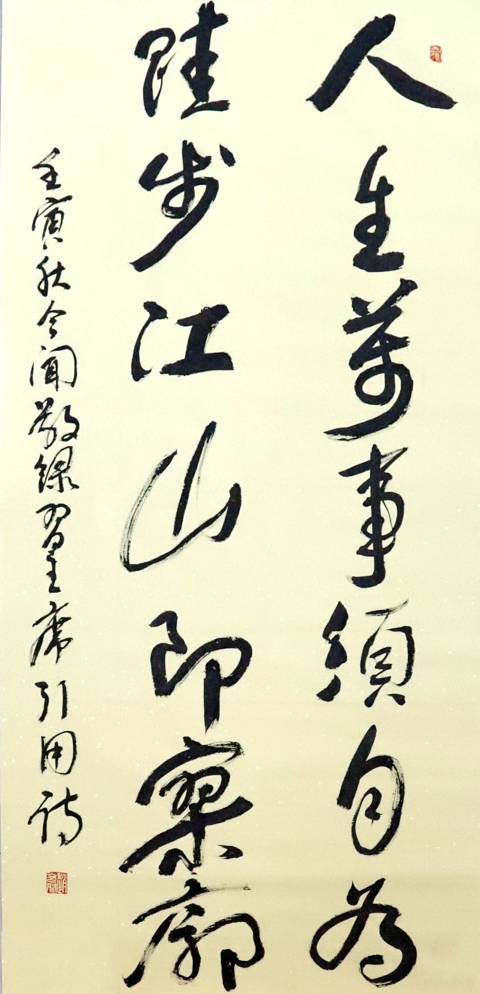 人生萬事須自為
跬步江山即寥廓
壬寅秋今聞敬錄習主席引用詩